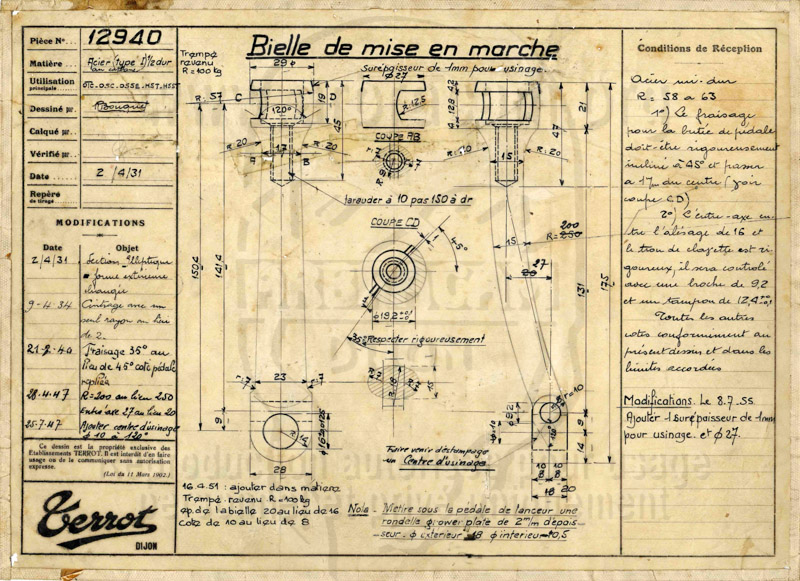 Pièce No... 12940
Matière... Acier (type I) ½ dur
Utilisation principale
OTC-OSC-OSSE-HST-HSST
Dessiné par... Bouquet
Calqué par...
Vérifié par...
Date... 2/4/31
Repéré de tirage
MODIFICATIONS
Date Objet
2/4/31 Section Elliptique
forme extérieure
changée
9-4-34 Cintrage avec un
seul rayon au lieu
de 2
21-2-40 Fraisage 35° au
lieu de 45° coté pédale
repliée
28.4.47 R=200 au lieu 250
Entre axe 27 au lieu 20
25.7.47 Ajouter centre d'usinage
φ 10 à 120°
Ce dessin est la propriété exclusive des
Établissements TERROT. Il est interdit d'en faire
usage ou de le communiquer sans autorisation
expresse.
(Loi du 11 Mars 1902.)
Terrot
DIJON
Bielle de mise en marche
Trempé
revenu
R=100kg
Surépaisseur de 1mm pour usinage.
29
φ27
R. 57
C
D
120°
19
45
R.12,5
4
128
42
47
21
COUPE AB
R.20
A
17
B
R.20
R.20
15
R.20
tarauder à 10 pas 150 à dr
COUPE CD
45°
200
R=250
15
27
20
150,4
141,4
131
175
φ19,2
35° Respecter rigoureusement
23
15
R=10
9
28
φ9,2
9
14
10 10
8 8
16 20
Faire venir d'éstampage
un Centre d'usinage
16.4.51 : ajouter dans matière
Trempé revenu R=100kg
ep. de la bielle 20 au lieu de 16
cote de 10 au lieu de 8
Nota - Mettre sous la pédale de lanceur une
rondelle grower plate de 2m/m d'épais-
seur. φ extérieur 18 φ intérieur 10,5
Conditions de Réception
Acier mi-dur
R = 58 à 63
1°) Le fraisage
pour la butée de pédale
doit être rigoureusement
incliné à 45° et passer
à 17m/m du centre (voir
coupe CD)
2°) L'entre-axe en-
tre l'alésage de 16 et
le trou de clavette est ri-
goureux, il sera contrôlé
avec une broche de 9,2
et un tampon de 12,4
Toutes les autres
cotes conformément au
présent dessin et dans les
limites accordées
Modifications. Le 8.7.55.
Ajouter 1 surépaisseur de 1mm
pour usinage. et φ27.